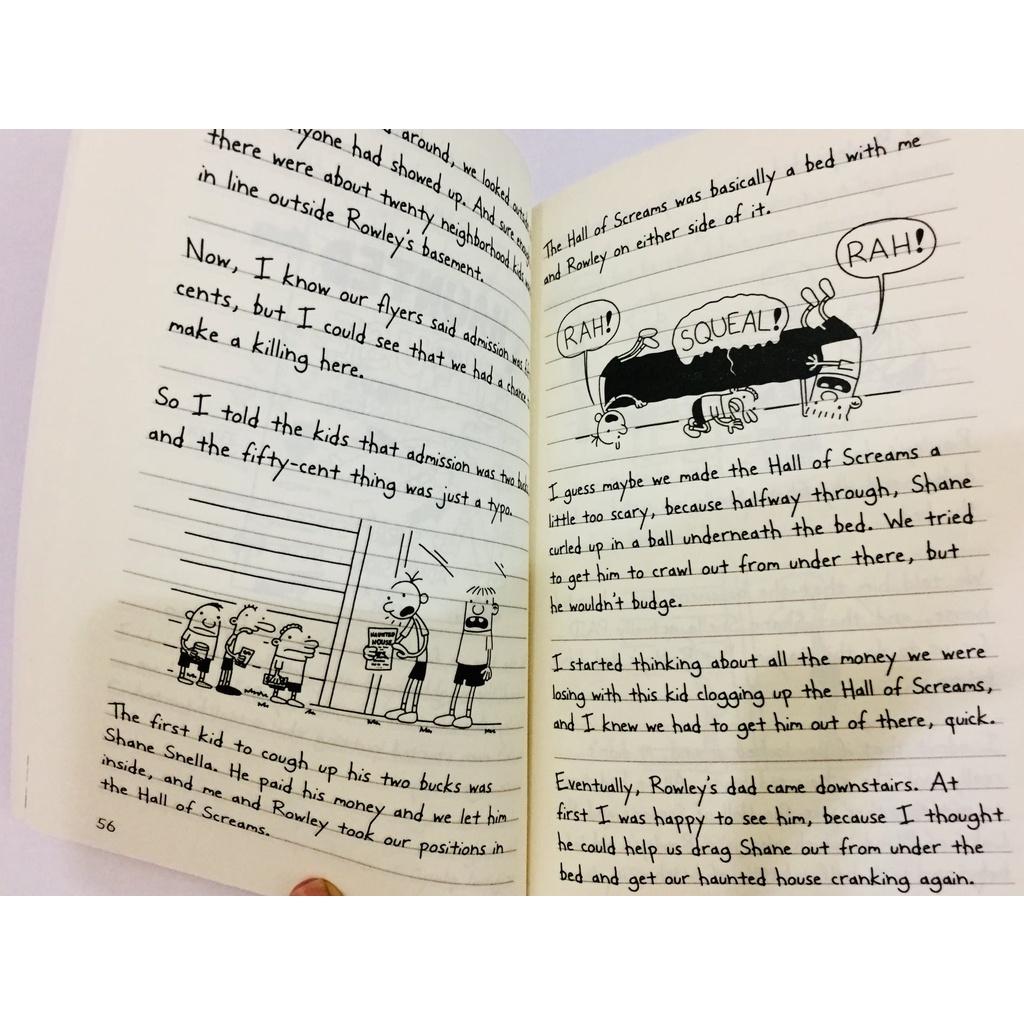 around, we looked
had showed up. And sure
there were about twenty neighborhood kids
in line outside Rowley's basement.
Now, I know our flyers said admission was
cents, but I could see that we had a chance
make a killing here.
So I told the kids that admission was two
and the fifty-cent thing was just a typo.
HAUNTED
HOUSE
The first kid to cough up his two bucks was
Shane Snella. He paid his money and we let him
inside, and me and Rowley took our positions in
the Hall of Screams.
56
The Hall of Screams was basically a bed with me
and Rowley on either side of it.
RAH!
SQUEAL!
RAH!
I guess maybe we made the Hall of Screams a
little too scary, because halfway through, Shane
curled up in a ball underneath the bed. We tried
to get him to crawl out from under there, but
he wouldn't budge.
I started thinking about all the money we were
losing with this kid clogging up the Hall of Screams,
and I knew we had to get him out of there, quick.
Eventually, Rowley's dad came downstairs. At
first I was happy to see him, because I thought
he could help us drag Shane out from under the
bed and get our haunted house cranking again.